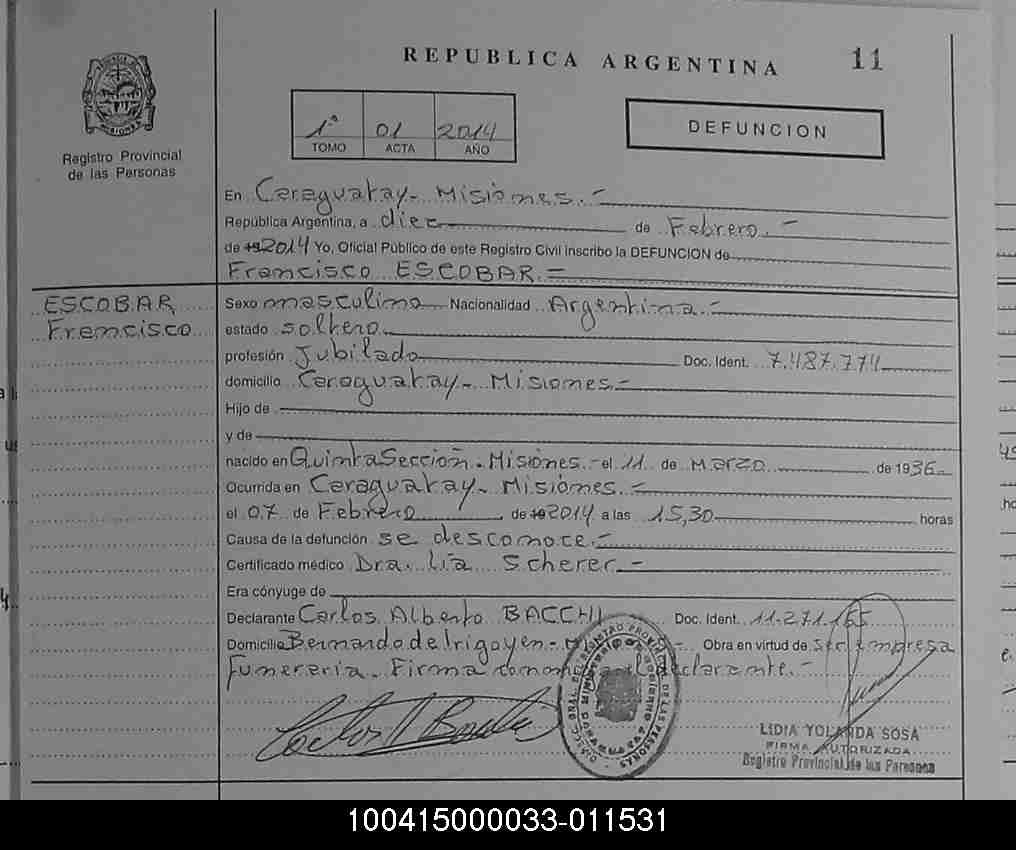 REPUBLICA ARGENTINA
11
Registro Provincial
de las Personas
1ª 01 2014
TOMO ACTA AÑO
DEFUNCION
En Caraguatay - Misiones. -
República Argentina, a diez de Febrero. -
de 19 2014 Yo, Oficial Público de este Registro Civil inscribo la DEFUNCION de
Francisco ESCOBAR. =
ESCOBAR
Francisco
Sexo masculino Nacionalidad Argentina. -
estado soltero
profesión Jubilado Doc. Ident. 7.487.774
domicilio Caraguatay - Misiones. -
Hijo de
y de
nacido en Quinta Sección - Misiones - el 11 de Marzo de 1936
Ocurrida en Caraguatay - Misiones. -
el 07 de Febrero de 19 2014 a las 15,30 horas
Causa de la defunción se desconoce. -
Certificado médico Dra. Lia Scherer. -
Era cónyuge de
Declarante Carlos Alberto BACCHI Doc. Ident. 11.271.155
Domicilio Bernardo de Irigoyen - Obra en virtud de ser Empresa
Funeraria. Firma declarante. -
LIDIA YOLANDA SOSA
FIRMA AUTORIZADA
Registro Provincial de las Personas
100415000033-011531